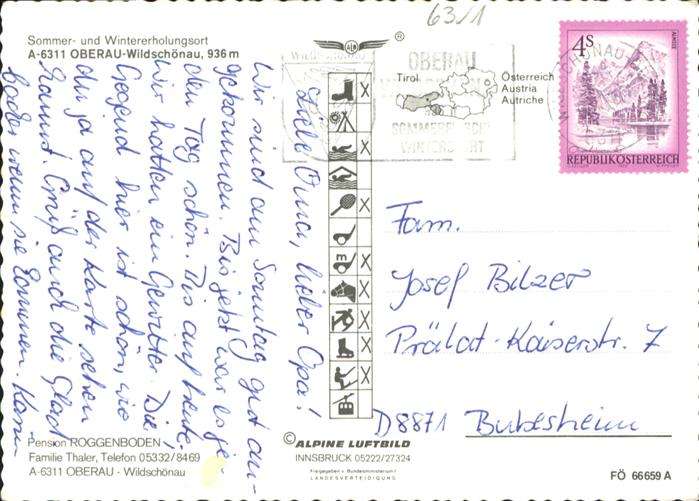 63/1
Sommer- und Wintererholungsort
A-6311 OBERAU-Wildschönau, 936 m
ALB
®
Tirol
Österreich
Austria
Autriche
OBERAU
SOMMERFRISCHE
WINTERSPORT
4S
ALMSEE
REPUBLIK ÖSTERREICH
Liebe Oma, lieber Opa!
Wir sind am Sonntag gut an-
gekommen. Bis jetzt war es je-
den Tag schön. Bis auf heute.
Wir hatten ein Gewitter. Die
Gegend hier ist schön, wie
ihr ja auf der Karte sehen
könnt. Grüß auch die
wenn sie kommen. Karin
Fam.
Josef Bilzer
Prälat-Kaiserstr. 7
D 8871 Bubesheim
Pension ROGGENBODEN
Familie Thaler, Telefon 05332/8469
A-6311 OBERAU - Wildschönau
© ALPINE LUFTBILD
INNSBRUCK 05222/27324
Freigegeben v. Bundesministerium f.
LANDESVERTEIDIGUNG
FÖ 66659 A